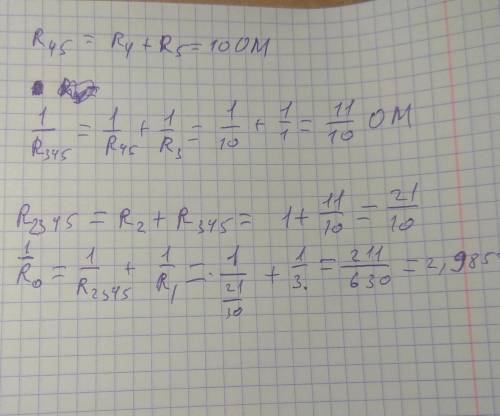 R₄₅ = R₄ + R₅ = 10 ОМ
1/R₃₄₅ = 1/R₄₅ + 1/R₃ = 1/10 + 1/1 = 11/10 ОМ
R₂₃₄₅ = R₂ + R₃₄₅ = 1 + 11/10 = 21/10
1/R₀ = 1/R₂₃₄₅ + 1/R₁ = 1/(21/30) + 1/3 = 211/630 = 2,985